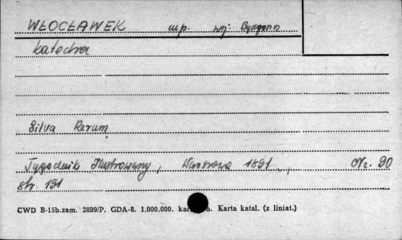 WŁOCŁAWEK mp. woj. Bydgoszcz
Katedra
Silva Rerum
Tygodnik Ilustrowany, Warszawa 1891, nr. 90
str. 191
CWD B-15b.zam. 2899/P. GDA-8. 1.000.000. Karta katal. (z liniat.)